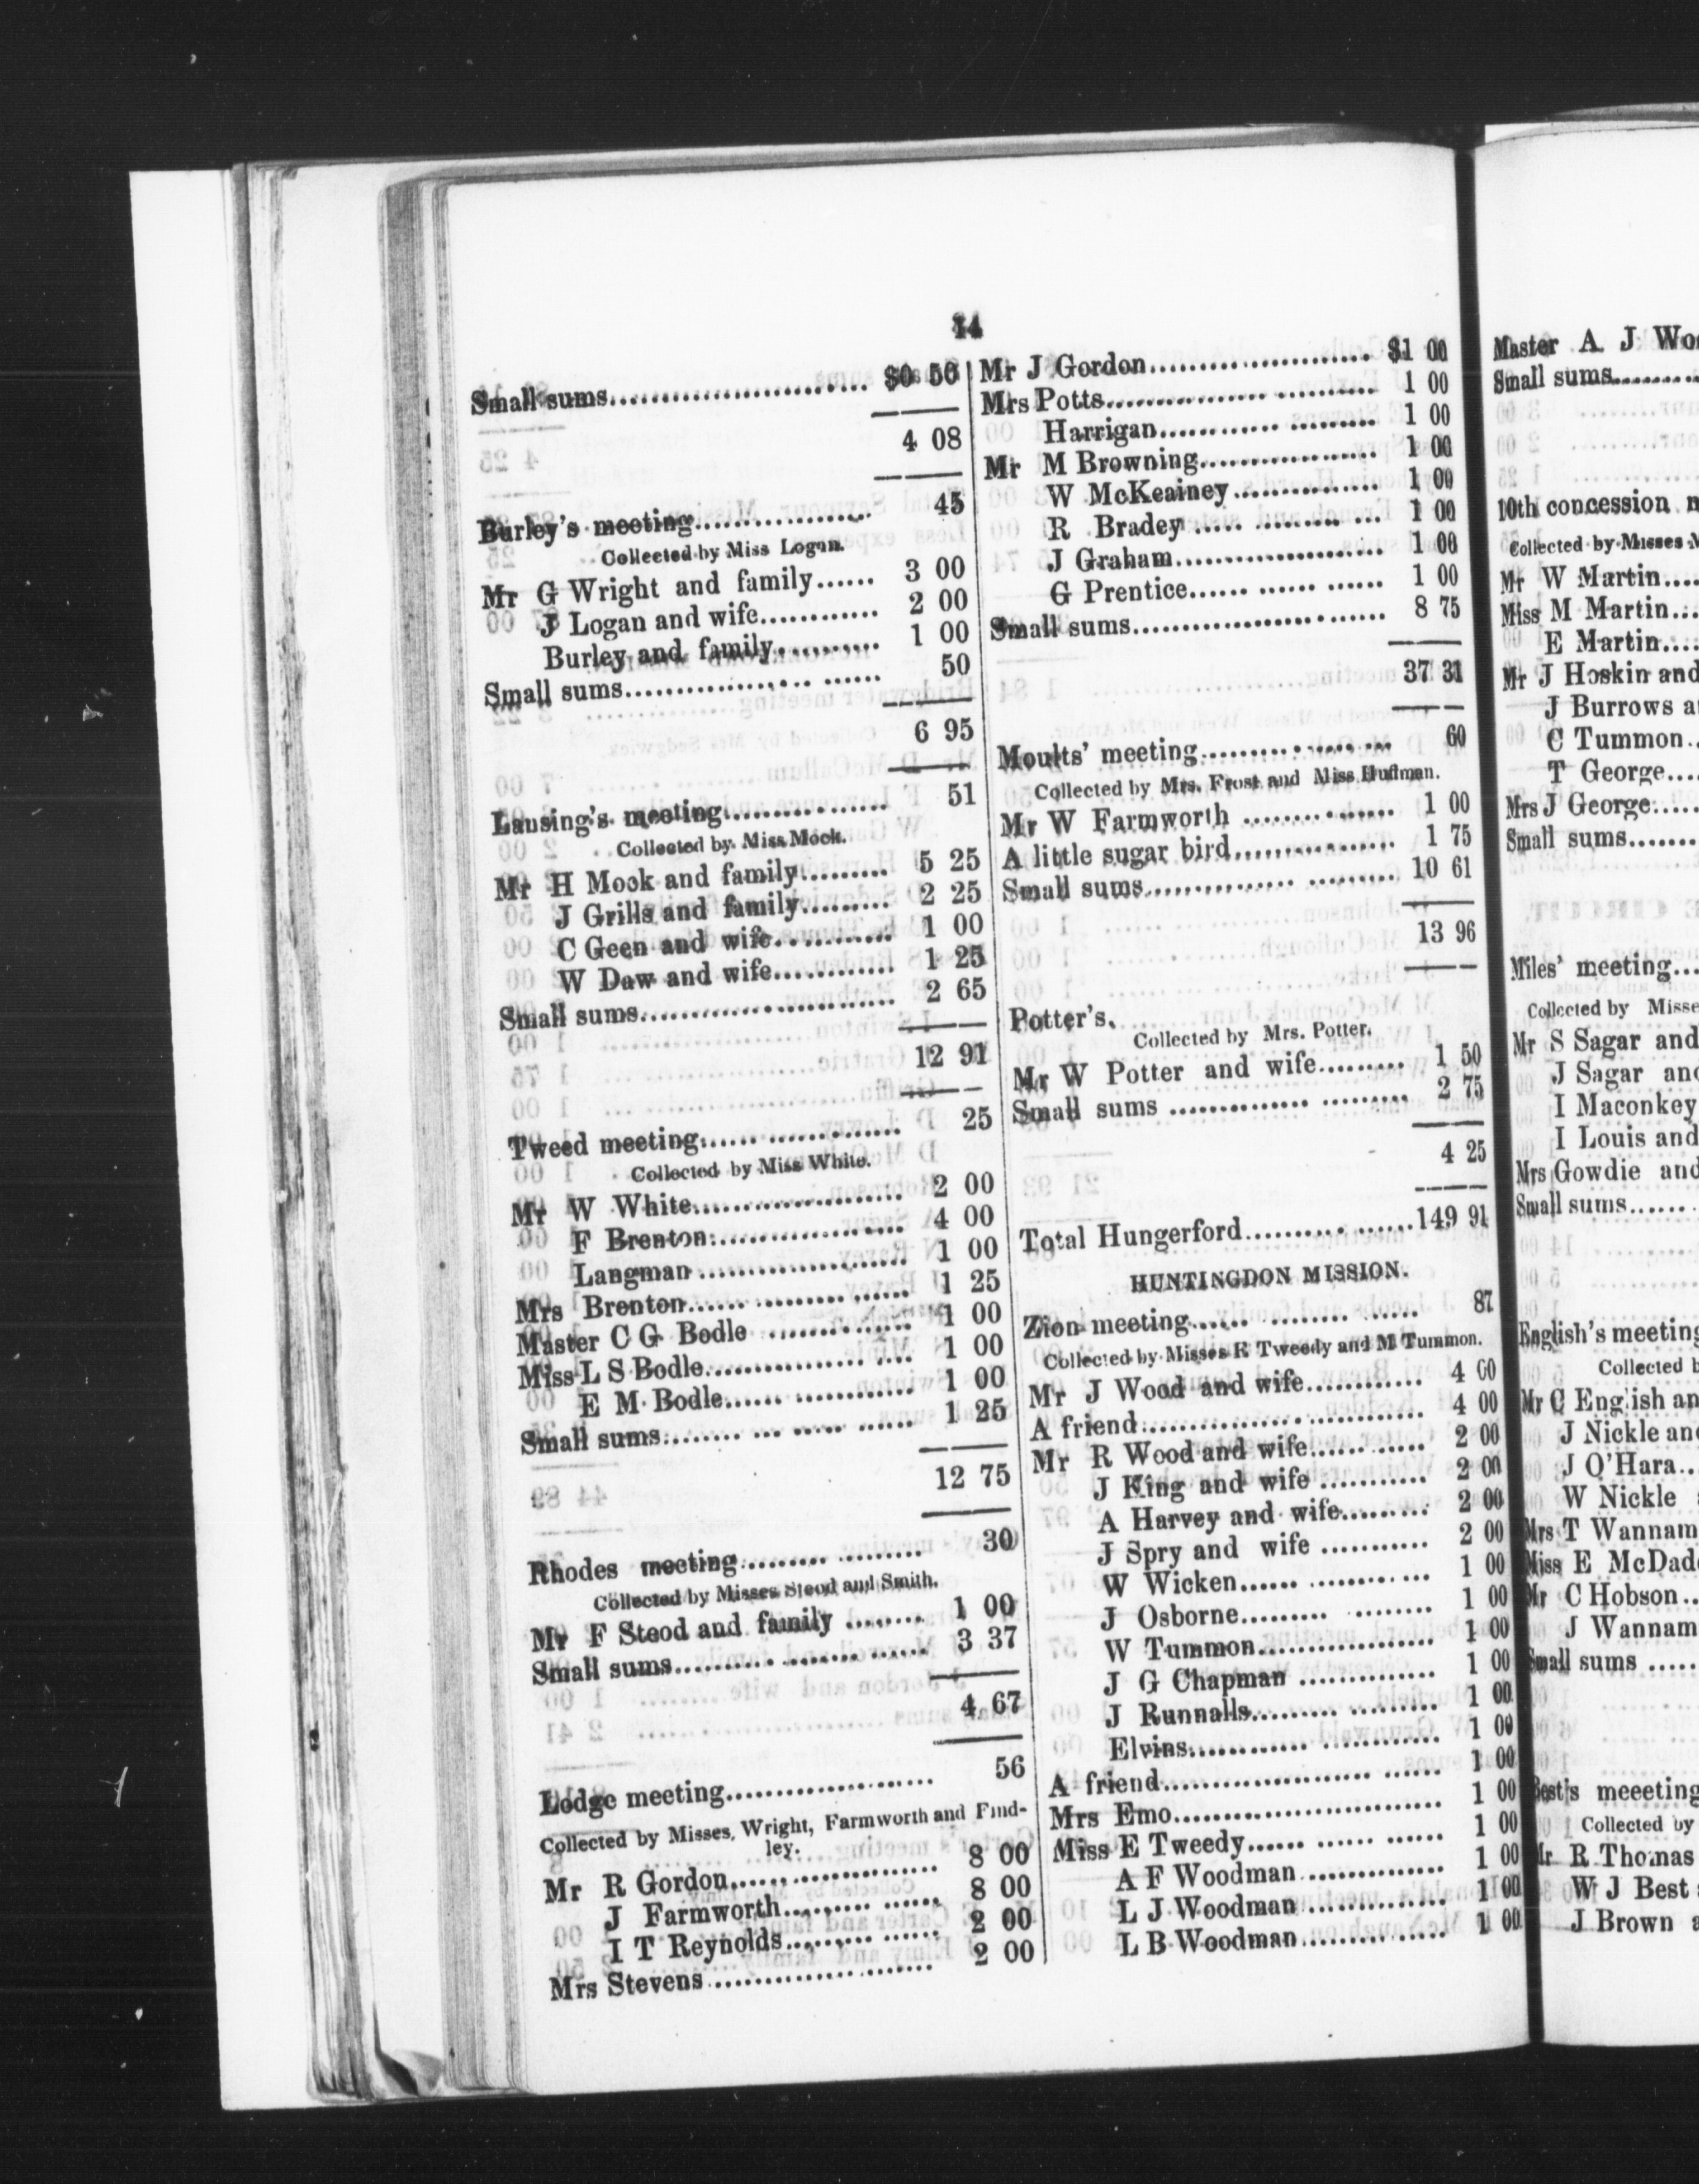 14
Small sums........................ $0 50
4 08
Burley's meeting.................. 45
Collected by Miss Logan.
Mr G Wright and family...... 3 00
J Logan and wife............ 2 00
Burley and family.......... 1 00
Small sums.................. ...... 50
6 95
Lansing's meeting................ 51
Collected by Miss Mock.
Mr H Mock and family......... 5 25
J Grills and family......... 2 25
C Geen and wife........... 1 00
W Daw and wife............ 1 25
Small sums........................ 2 65
12 91
Tweed meeting...... ............. 25
Collected by Miss White.
Mr W White..................... 2 00
F Brenton.................. 4 00
Langman..................... 1 00
Mrs Brenton...... ......... ...... 1 25
Master C G Bodle .............. 1 00
Miss L S Bodle............... .... 1 00
E M Bodle...... ............ 1 00
Small sums........ ... ..... ...... 1 25
12 75
Rhodes meeting......... ......... 30
Collected by Misses Steod and Smith.
Mr F Steod and family ........ 1 00
Small sums.......... ....... ...... 3 37
4 67
Lodge meeting..................... 56
Collected by Misses, Wright, Farmworth and Find-
ley.
Mr R Gordon..................... 8 00
J Farmworth......... ...... 8 00
I T Reynolds......... ...... 2 00
Mrs Stevens....................... 2 00
Mr J Gordon...................... $1 00
Mrs Potts............... .......... 1 00
Harrigan............ ......... 1 00
Mr M Browning.................. 1 00
W McKeainey............... 1 00
R Bradey ..... ......... ... 1 00
J Graham..................... 1 00
G Prentice...... ...... ...... 1 00
Small sums........................ 8 75
37 31
Moults' meeting............... ... 60
Collected by Mrs. Frost and Miss Huffman.
Mr W Farmworth .............. 1 00
A little sugar bird............... 1 75
Small sums............... ......... 10 61
13 96
Potter's.
Collected by Mrs. Potter.
Mr W Potter and wife......... 1 50
Small sums .............. ......... 2 75
4 25
Total Hungerford.......... ......149 91
HUNTINGDON MISSION.
Zion meeting...... ......... ...... 87
Collected by Misses R Tweedy and M Tummon.
Mr J Wood and wife............ 4 00
A friend........................... 4 00
Mr R Wood and wife...... ...... 2 00
J King and wife ........... 2 00
A Harvey and wife......... 2 00
J Spry and wife ........... 2 00
W Wicken...... ............ 1 00
J Osborne......... ......... 1 00
W Tummon.................. 1 00
J G Chapman .............. 1 00
J Runnalls......... ......... 1 00
Elvins............ ............ 1 00
A friend..................... ...... 1 00
Mrs Emo........................... 1 00
Miss E Tweedy...... ...... ...... 1 00
A F Woodman............... 1 00
L J Woodman .............. 1 00
L B Woodman............... 1 00
Master A. J Wo
Small sums.........
10th concession m
Collected by Misses M
Mr W Martin....
Miss M Martin...
E Martin....
Mr J Hoskin and
J Burrows a
C Tummon..
T George....
Mrs J George.....
Small sums.......
Miles' meeting...
Collected by Misse
Mr S Sagar and
J Sagar and
I Maconkey
I Louis and
Mrs Gowdie and
Small sums......
English's meeting
Collected b
Mr C English an
J Nickle and
J O'Hara..
W Nickle
Mrs T Wannam
Miss E McDade
Mr C Hobson..
J Wannam
Small sums .....
Best's meeeting
Collected by
Mr R Thomas
W J Best
J Brown a